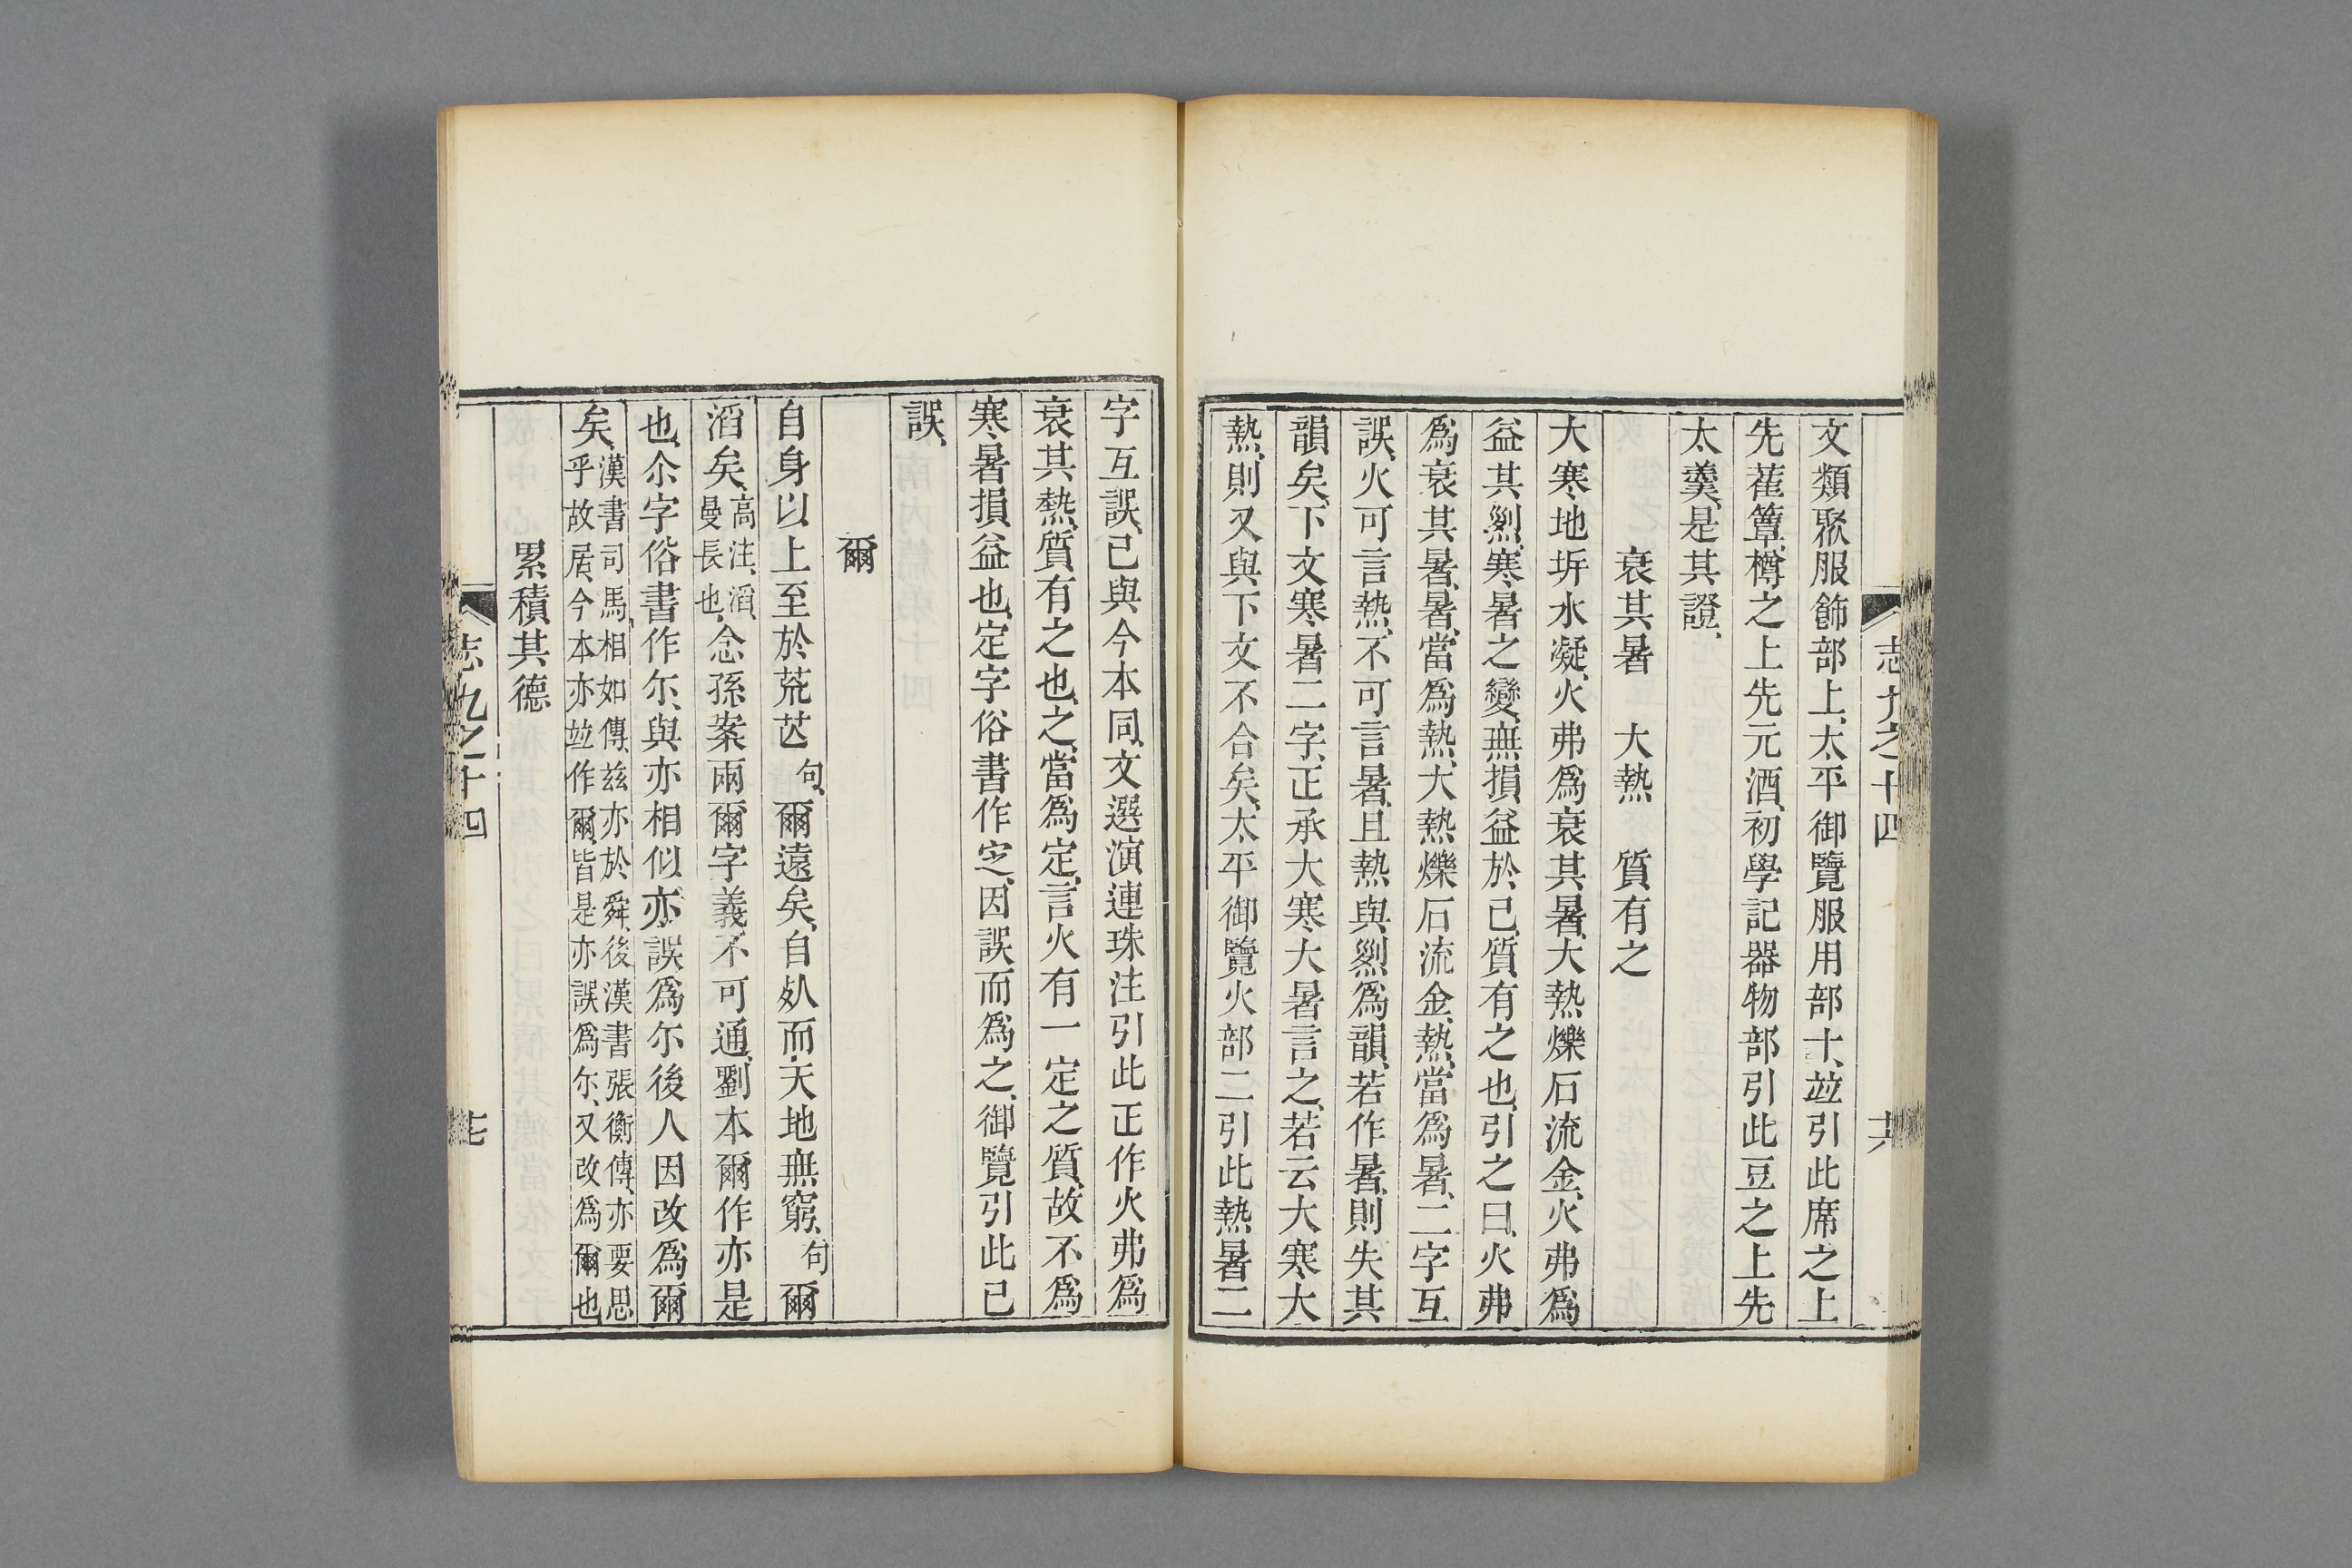 志九之十四
文類聚服飾部上、太平御覽服用部十、竝引此席之上
先雚簟、樽之上先元酒、初學記器物部引此豆之上先
太羹、是其證、
衰其暑　大熱　質有之
大寒、地坼水凝、火弗爲衰其暑、大熱爍石流金、火弗爲
益其㷠、寒暑之變、無損益於己、質有之也、引之曰、火弗
爲衰其暑、暑、當爲熱、大熱爍石流金、熱、當爲暑、二字互
誤、火可言熱、不可言暑、且熱與㷠爲韻、若作暑、則失其
韻矣、下文寒暑二字、正承大寒大暑言之、若云大寒大
熱、則又與下文不合矣、太平御覽火部二引此熱暑二
字互誤、已與今本同、文選演連珠注引此正作火弗爲
衰其熱、質有之也、之、當爲定、言火有一定之質、故不爲
寒暑損益也、定字俗書作㝎、因誤而爲之、御覽引此已
誤、
爾
自身以上至於荒芒句、爾遠矣、自𣦸而天地無窮、句爾
滔矣、高注、滔、曼長也、念孫案兩爾字義不可通、劉本爾作亦是
也、尒字俗書作尓、與亦相似、亦誤爲尓、後人因改爲爾
矣、漢書司馬相如傳、兹亦於舜、後漢書張衡傳、亦要思乎故居、今本亦竝作爾、皆是亦誤爲尓、又改爲爾也
累積其德
志九之十四